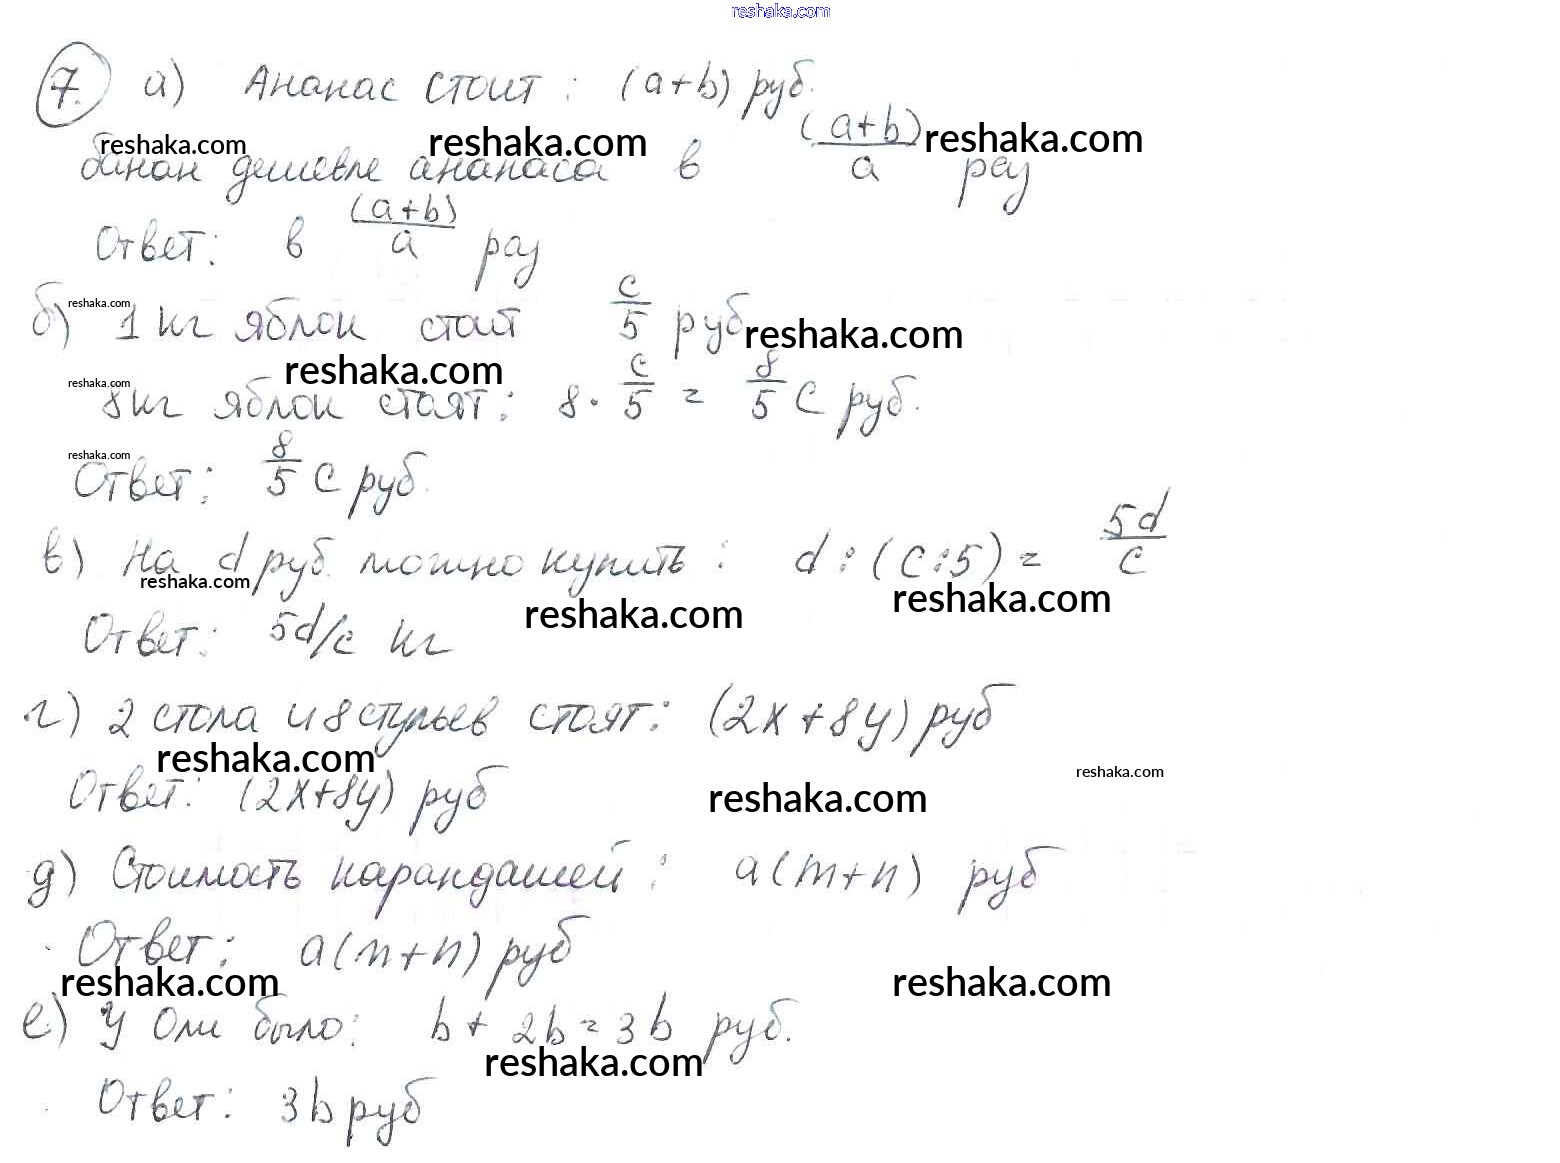 reshaka.com
7. а) Ананас стоит: (a+b) руб.
reshaka.com reshaka.com reshaka.com
банан дешевле ананаса в (a+b)/a раз
Ответ: в (a+b)/a раз
reshaka.com
б) 1 кг яблок стоит c/5 руб
reshaka.com
reshaka.com
reshaka.com
8 кг яблок стоят: 8 · c/5 = 8/5 c руб.
reshaka.com
Ответ: 8/5 c руб.
в) На d руб. можно купить: d : (c:5) = 5d/c
reshaka.com
reshaka.com
reshaka.com
Ответ: 5d/c кг
г) 2 стола и 8 стульев стоят: (2x+8y) руб
reshaka.com
reshaka.com
reshaka.com
Ответ: (2x+8y) руб
д) Стоимость карандашей: a(m+n) руб
Ответ: a(m+n) руб
reshaka.com reshaka.com
е) У Оли было: b+2b=3b руб.
reshaka.com
Ответ: 3b руб